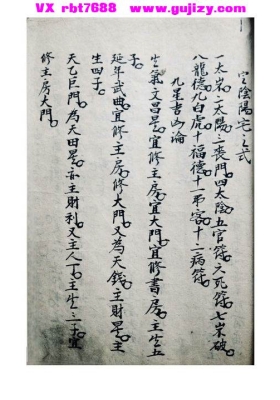 VX rbt7688 www.gujizy.com
定陰陽宅之式
一太岁二太陽三丧門四太陰五官符六死符七岁破
八龍德九白虎十福德十一弔客十二病符
九星吉凶論
生氣文昌星宜修主房宜大門宜修書房主生五
子
延年武曲宜修主房修大門又為天錢主財星主
生四子
天乙巨門為天田星亦主財利又主人丁主生三子宜
修主房大門